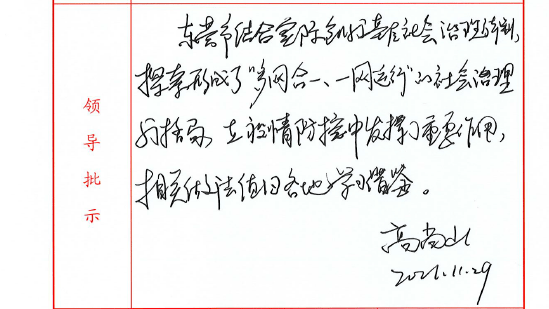 领导批示
东营市结合实际创新基层社会治理体制,
探索形成了“多网合一、一网运行”的社会治理
新格局,在疫情防控中发挥了重要作用,
相关做法值得各地学习借鉴。
高尚山
2021.11.29